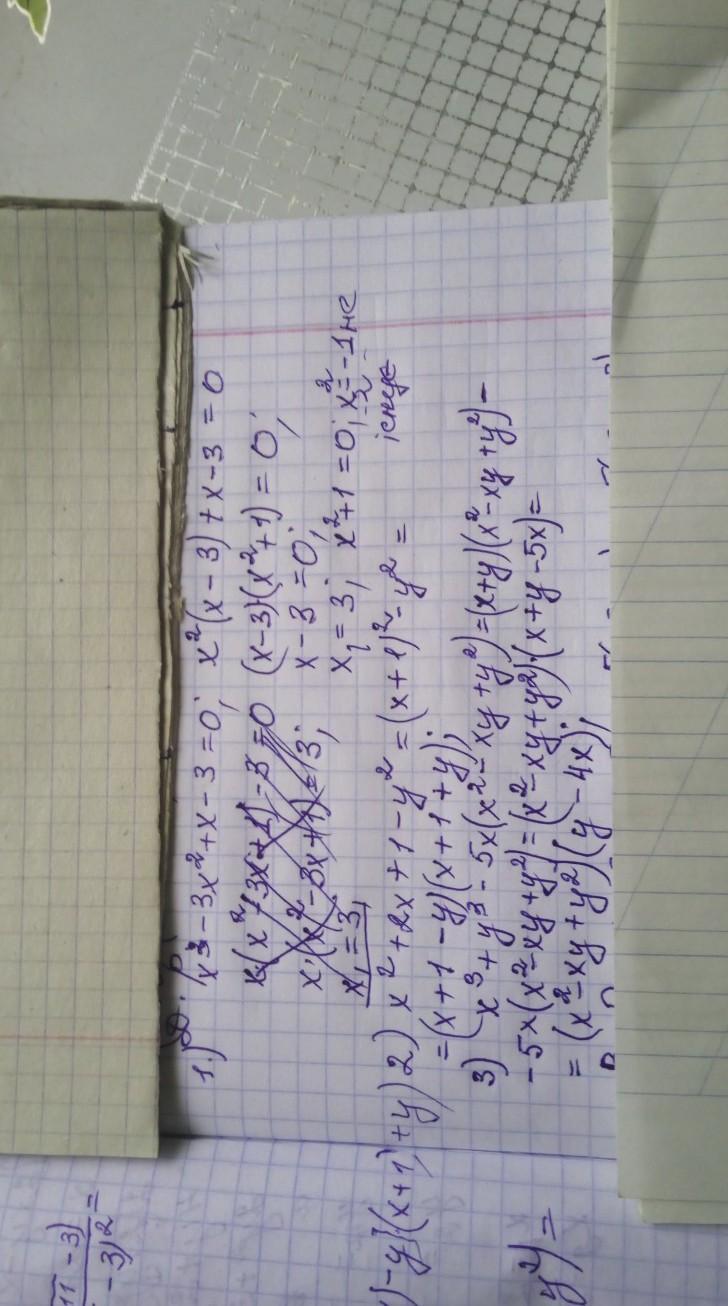 Д. р.
1.) x³ - 3x² + x - 3 = 0; x²(x - 3) + x - 3 = 0
(x-3)·(x²+1) = 0;
x - 3 = 0;
x₁ = 3; x²+1 = 0; x² = -1 не
існує
x₁ = 3,
2) x² + 2x + 1 - y² = (x + 1)² - y² =
= (x + 1 - y)(x + 1 + y);
3) x³ + y³ - 5x(x² - xy + y²) = (x+y)(x² - xy + y²) -
- 5x(x² - xy + y²) = (x² - xy + y²)·(x + y - 5x) =
= (x² - xy + y²)(y - 4x);
- 3)
- 3)2 =
) - y)(x+1 + y)
y²) =